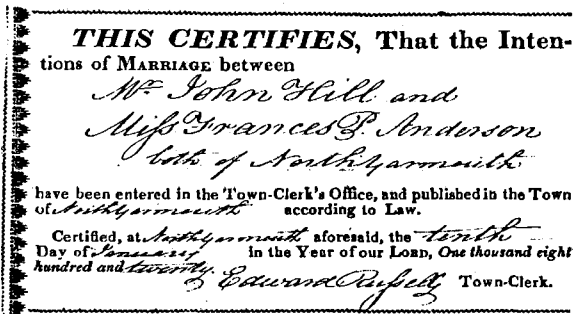 THIS CERTIFIES, That the Inten-
tions of MARRIAGE between
Mr. John Hill and
Miss Frances P. Anderson
both of North Yarmouth
have been entered in the Town-Clerk's Office, and published in the Town
of North Yarmouth according to Law.
Certified, at North Yarmouth aforesaid, the tenth
Day of January in the Year of our LORD, One thousand eight
hundred and twenty. Edward Russell, Town-Clerk.